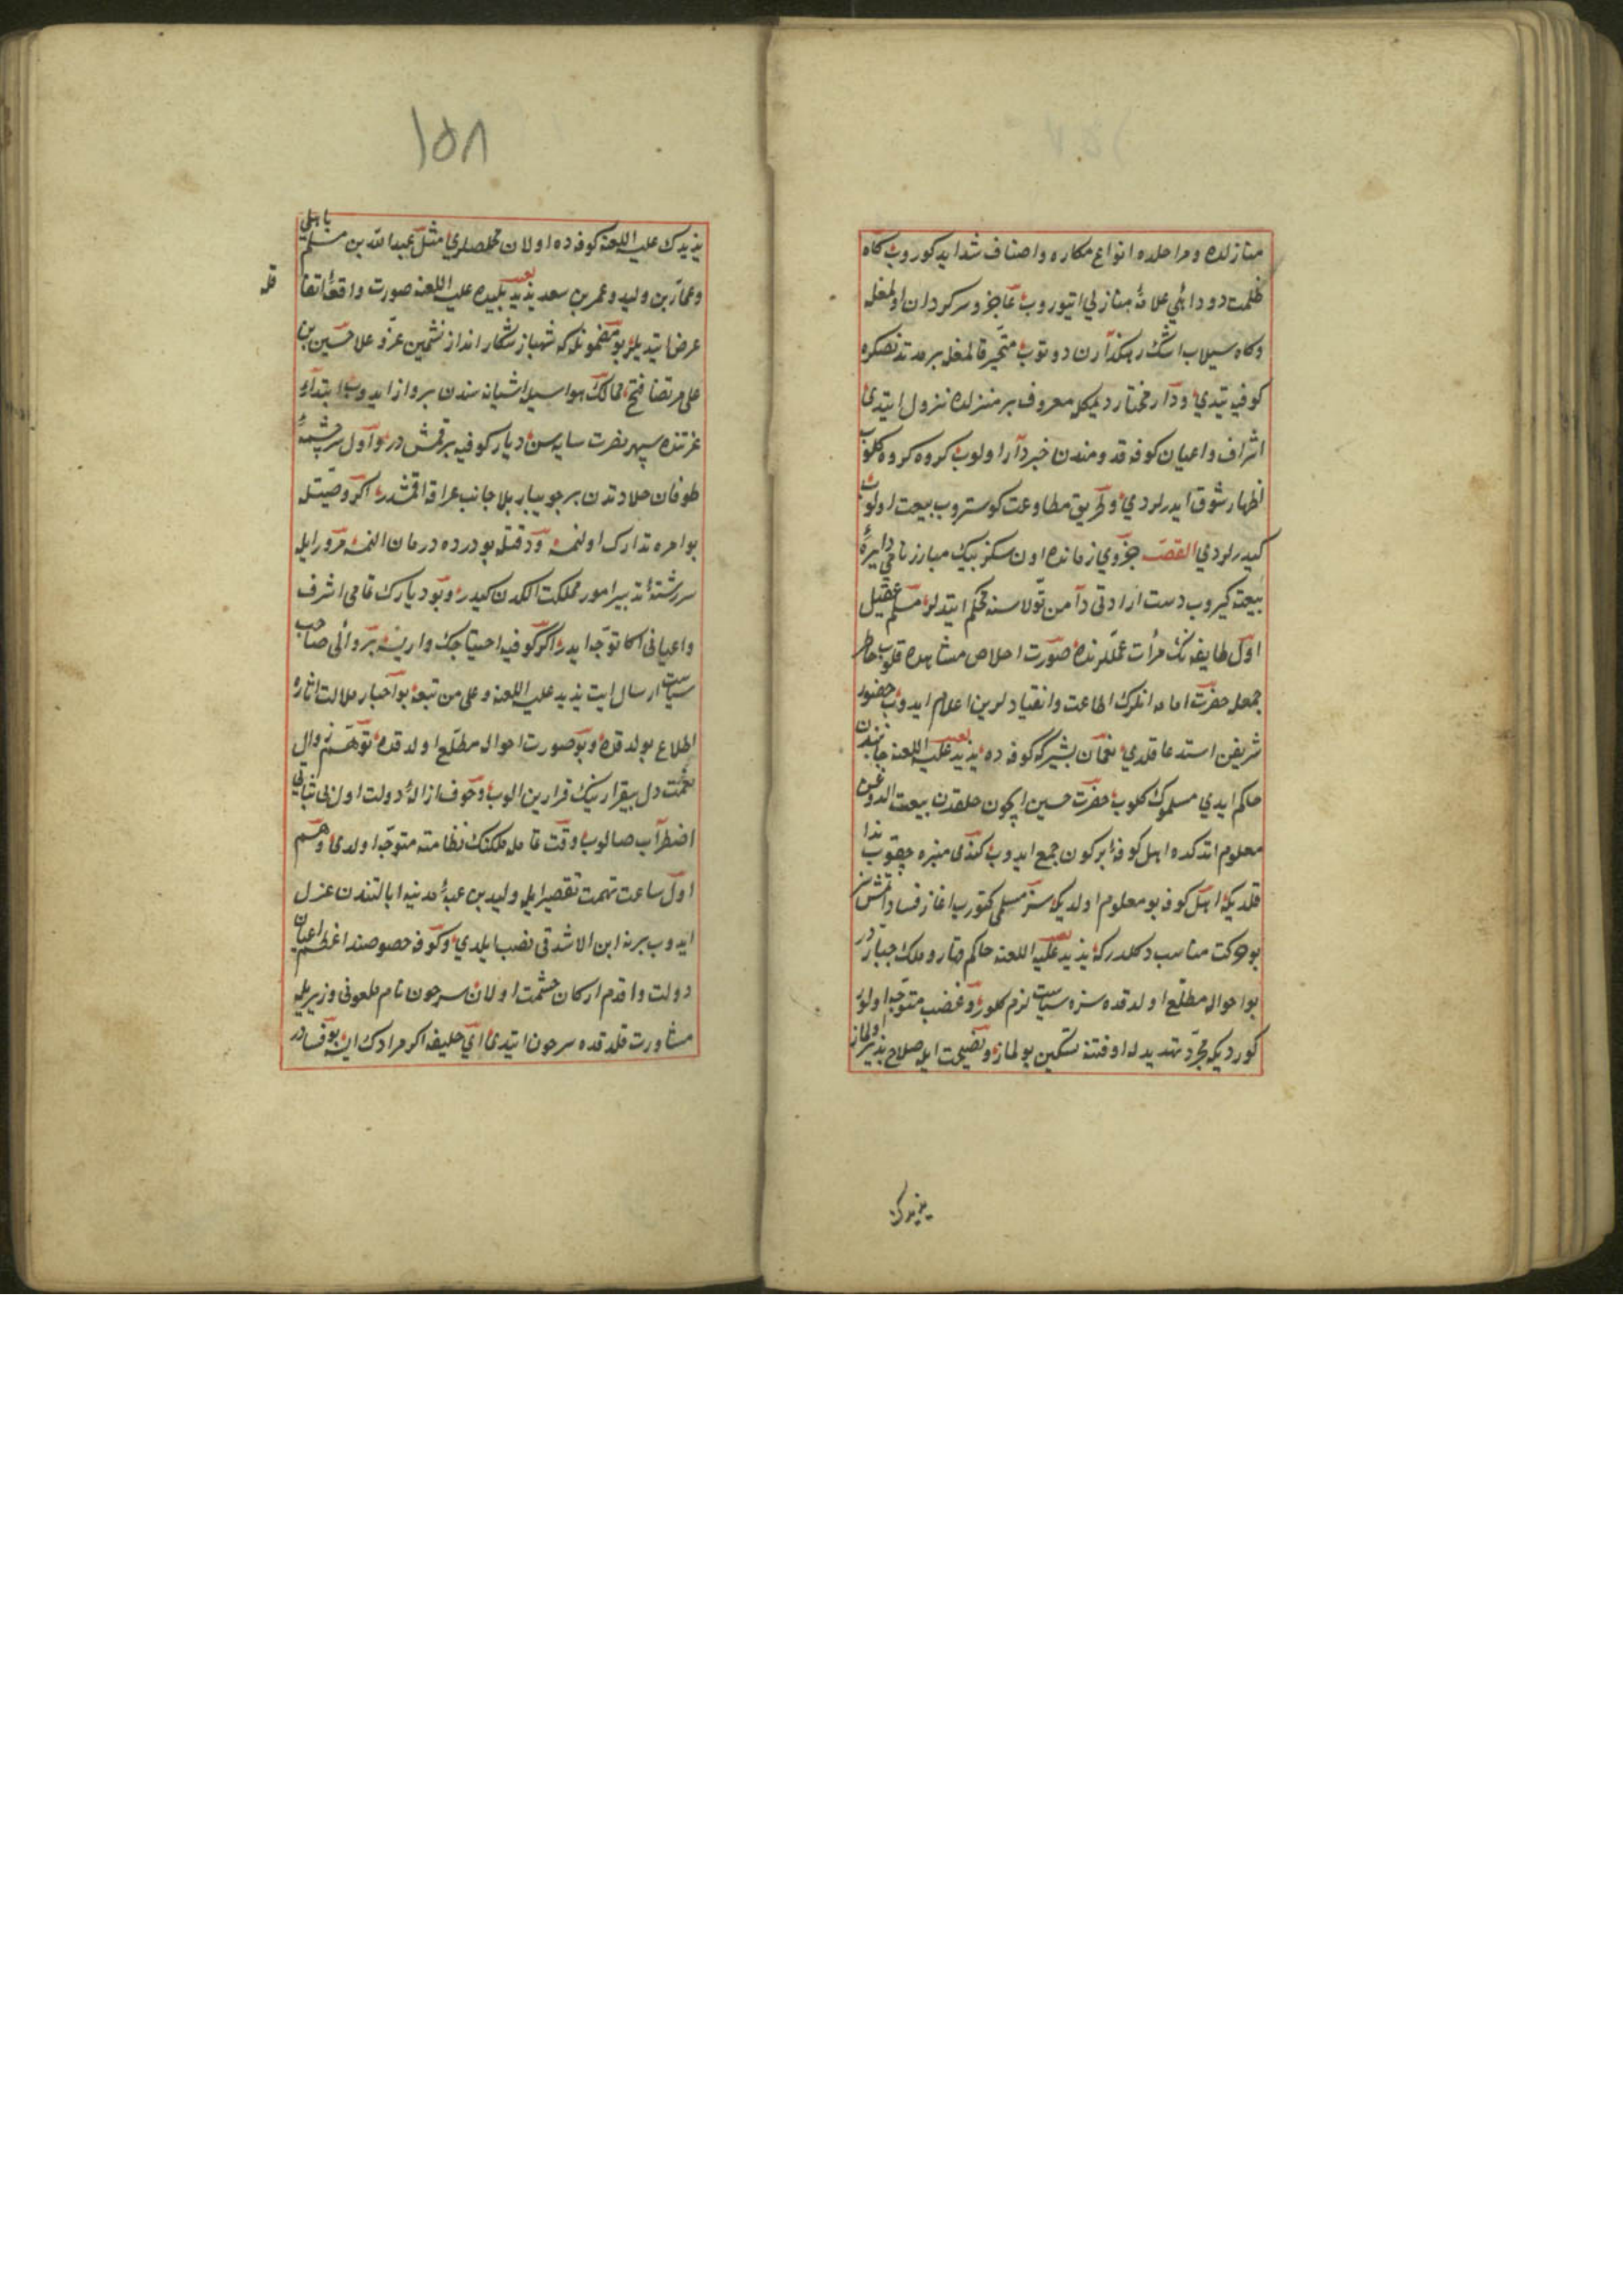 منازلده و مراحلده انواع مكاره و اصناف شدايد كوروب كاه
ظلمت دود ائمی علاقهٔ منازلی ایتوروب عاجز و سركردان اولمغله
و كاه سیلاب اشك رهكذارن دوتوب متحیر قالمغله بر مدتدنصكره
كوفیه یتدی و دار مختار دیمكله معروف بر منزلده نزول ایتدی
اشراف و اعیان كوفه قدومندن خبردار اولوب كروه كروه كلوب
اظهار شوق ایدرلردی و طریق مطاوعت كوستروب بیعت اولوب
كیدرلردی القصه جزوی زمانده اون سكز بیك مبارز نامی دایرهٔ
بیعته كیروب دست ارادتی دامن تولاسنه محكم ایتدیلر مسلم عقیل
اول طایفه نك مرأت عمللرنده صورت اخلاص مشاهده قلوب خاطر
جمعله حضرت امامه انلرك اطاعت و انقیادلرین اعلام ایدوب حضور
شریفن استدعا قلدی نعمان بشیر كه كوفه ده یزید علیه اللعنه جانبندن
حاكم ایدی مسلموك كلوب حضرت حسین ایچون خلقدن بیعت الدوغین
معلوم اتدكده اهل كوفه یی بركون جمع ایدوب كندی منبره چقوب ندا
قلدیكه اهل كوفه بو معلوم اولدیكه سز مسلمی كتورب اغاز فساد اتمشسز
بو حركت مناسب دكلدر كه یزید علیه اللعنه حاكم قهار و ملك جباردر
بو احواله مطلع اولدقده سزه سیاست لازم كلور و غضب متوجه اولور
كوردیكه مجرد تهدیدله او فتنه تسكین بولماز و نصیحت ایله صلاح پذیر اولماز
یزیدك
١٥٨
یزیدك علیه اللعنه كوفه ده اولان مخلصلری مثل عبدالله بن مسلم باهلی
و عمار بن ولید و عمر بن سعد یزید پلیده علیه اللعنه صورت واقعهٔ اتفا
قله
عرض ایتدیلر بو مضمونله كه شهباز شكار انداز نشیمن عز و علا حسین بن
علی مرتضا فتح ممالك هواسیله اشیانه سندن پرواز ایدوب ابتداء
عزتنده سپهر نصرت سایه سن دیار كوفیه براقمش در و اول سرچشمهٔ
طوفان جلادتدن بر جویبار بلا جانب عراقه اقمشدر اكر وقتیله
بو امره تدارك اولنمیه و دقتله بو درده درمان النمیه مرور ایله
سررشتهٔ تدبیر امور مملكت الكدن كیدر و بو دیارك تمامی اشرف
و اعیانی اكا توجه ایدر اكر كوفیه احتیاجك وار ایسه بر والی صاحب
سیاست ارسال ایت یزید علیه اللعنه و علی من تبعه بو اخبار ملالت اثاره
اطلاع بولدقده و بو صورت احواله مطلع اولدقده توهم زوال
نعمت دل بیقرارینك قرارین الوب و خوف ازالهٔ دولت اول بی ثباتی
اضطرابه صالوب وقت عامل ملكنك نظامنه متوجه اولدی و هم
اول ساعت تهمت تقصیر ایله ولید بن عتبهٔ مدینه ایالتندن عزل
ایدوب یرنه ابن الاشدقی نصب ایلدی و كوفه خصوصنده اعظم اعیان
دولت و اقدم اركان حشمت اولان سرجون نام ملعونی وزیریله
مشاورت قلدقده سرجون ایتدی ای خلیفه اكر مرادك ایسه بو فساد